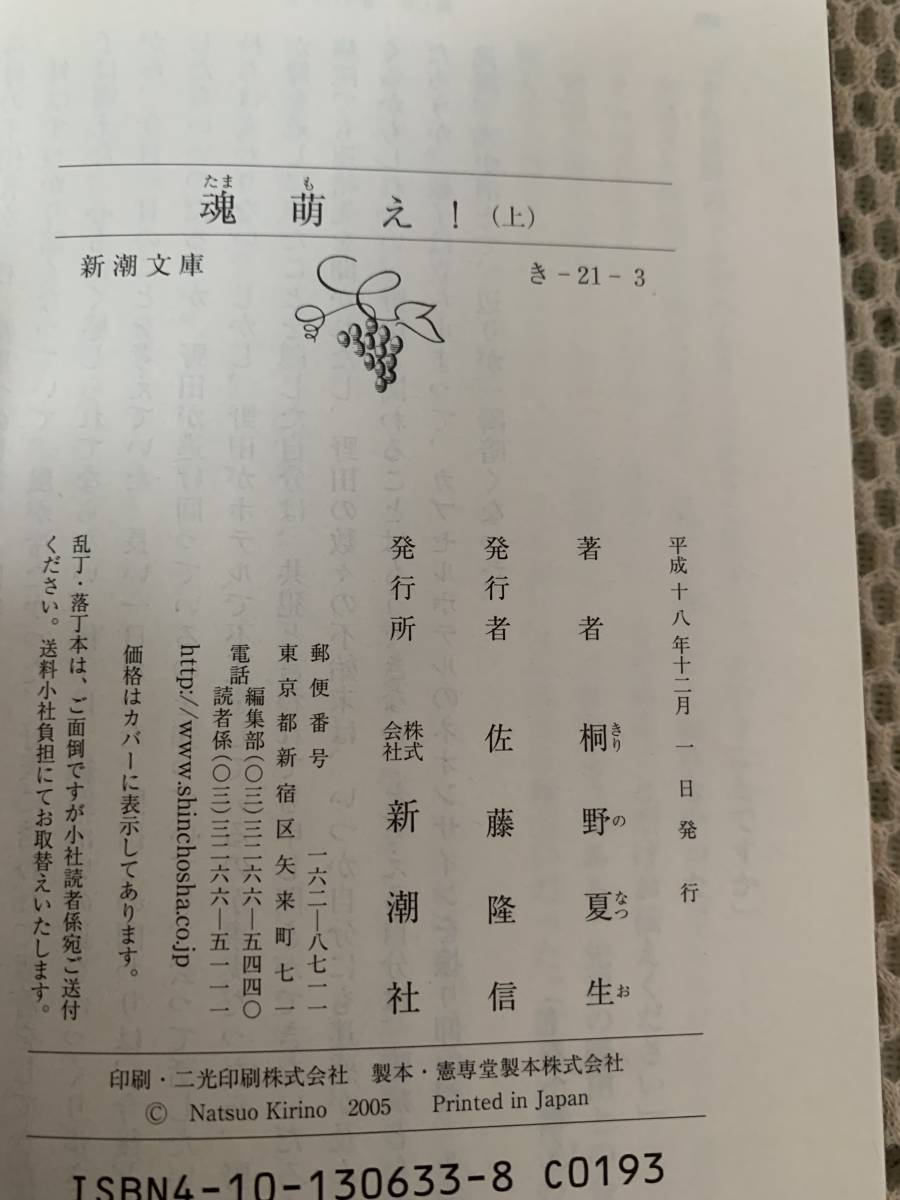 魂萌え！（上）
たま も
新潮文庫
き-21-3
平成十八年十二月一日発行
著者 桐野夏生
きり の なつ お
発行者 佐藤隆信
発行所 株式会社 新潮社
郵便番号 一六二―八七一一
東京都新宿区矢来町七一
電話 編集部(〇三)三二六六―五四四〇
読者係(〇三)三二六六―五一一一
http://www.shinchosha.co.jp
価格はカバーに表示してあります。
乱丁・落丁本は、ご面倒ですが小社読者係宛ご送付
ください。送料小社負担にてお取替えいたします。
印刷・二光印刷株式会社 製本・憲専堂製本株式会社
© Natsuo Kirino 2005 Printed in Japan
ISBN4-10-130633-8 C0193